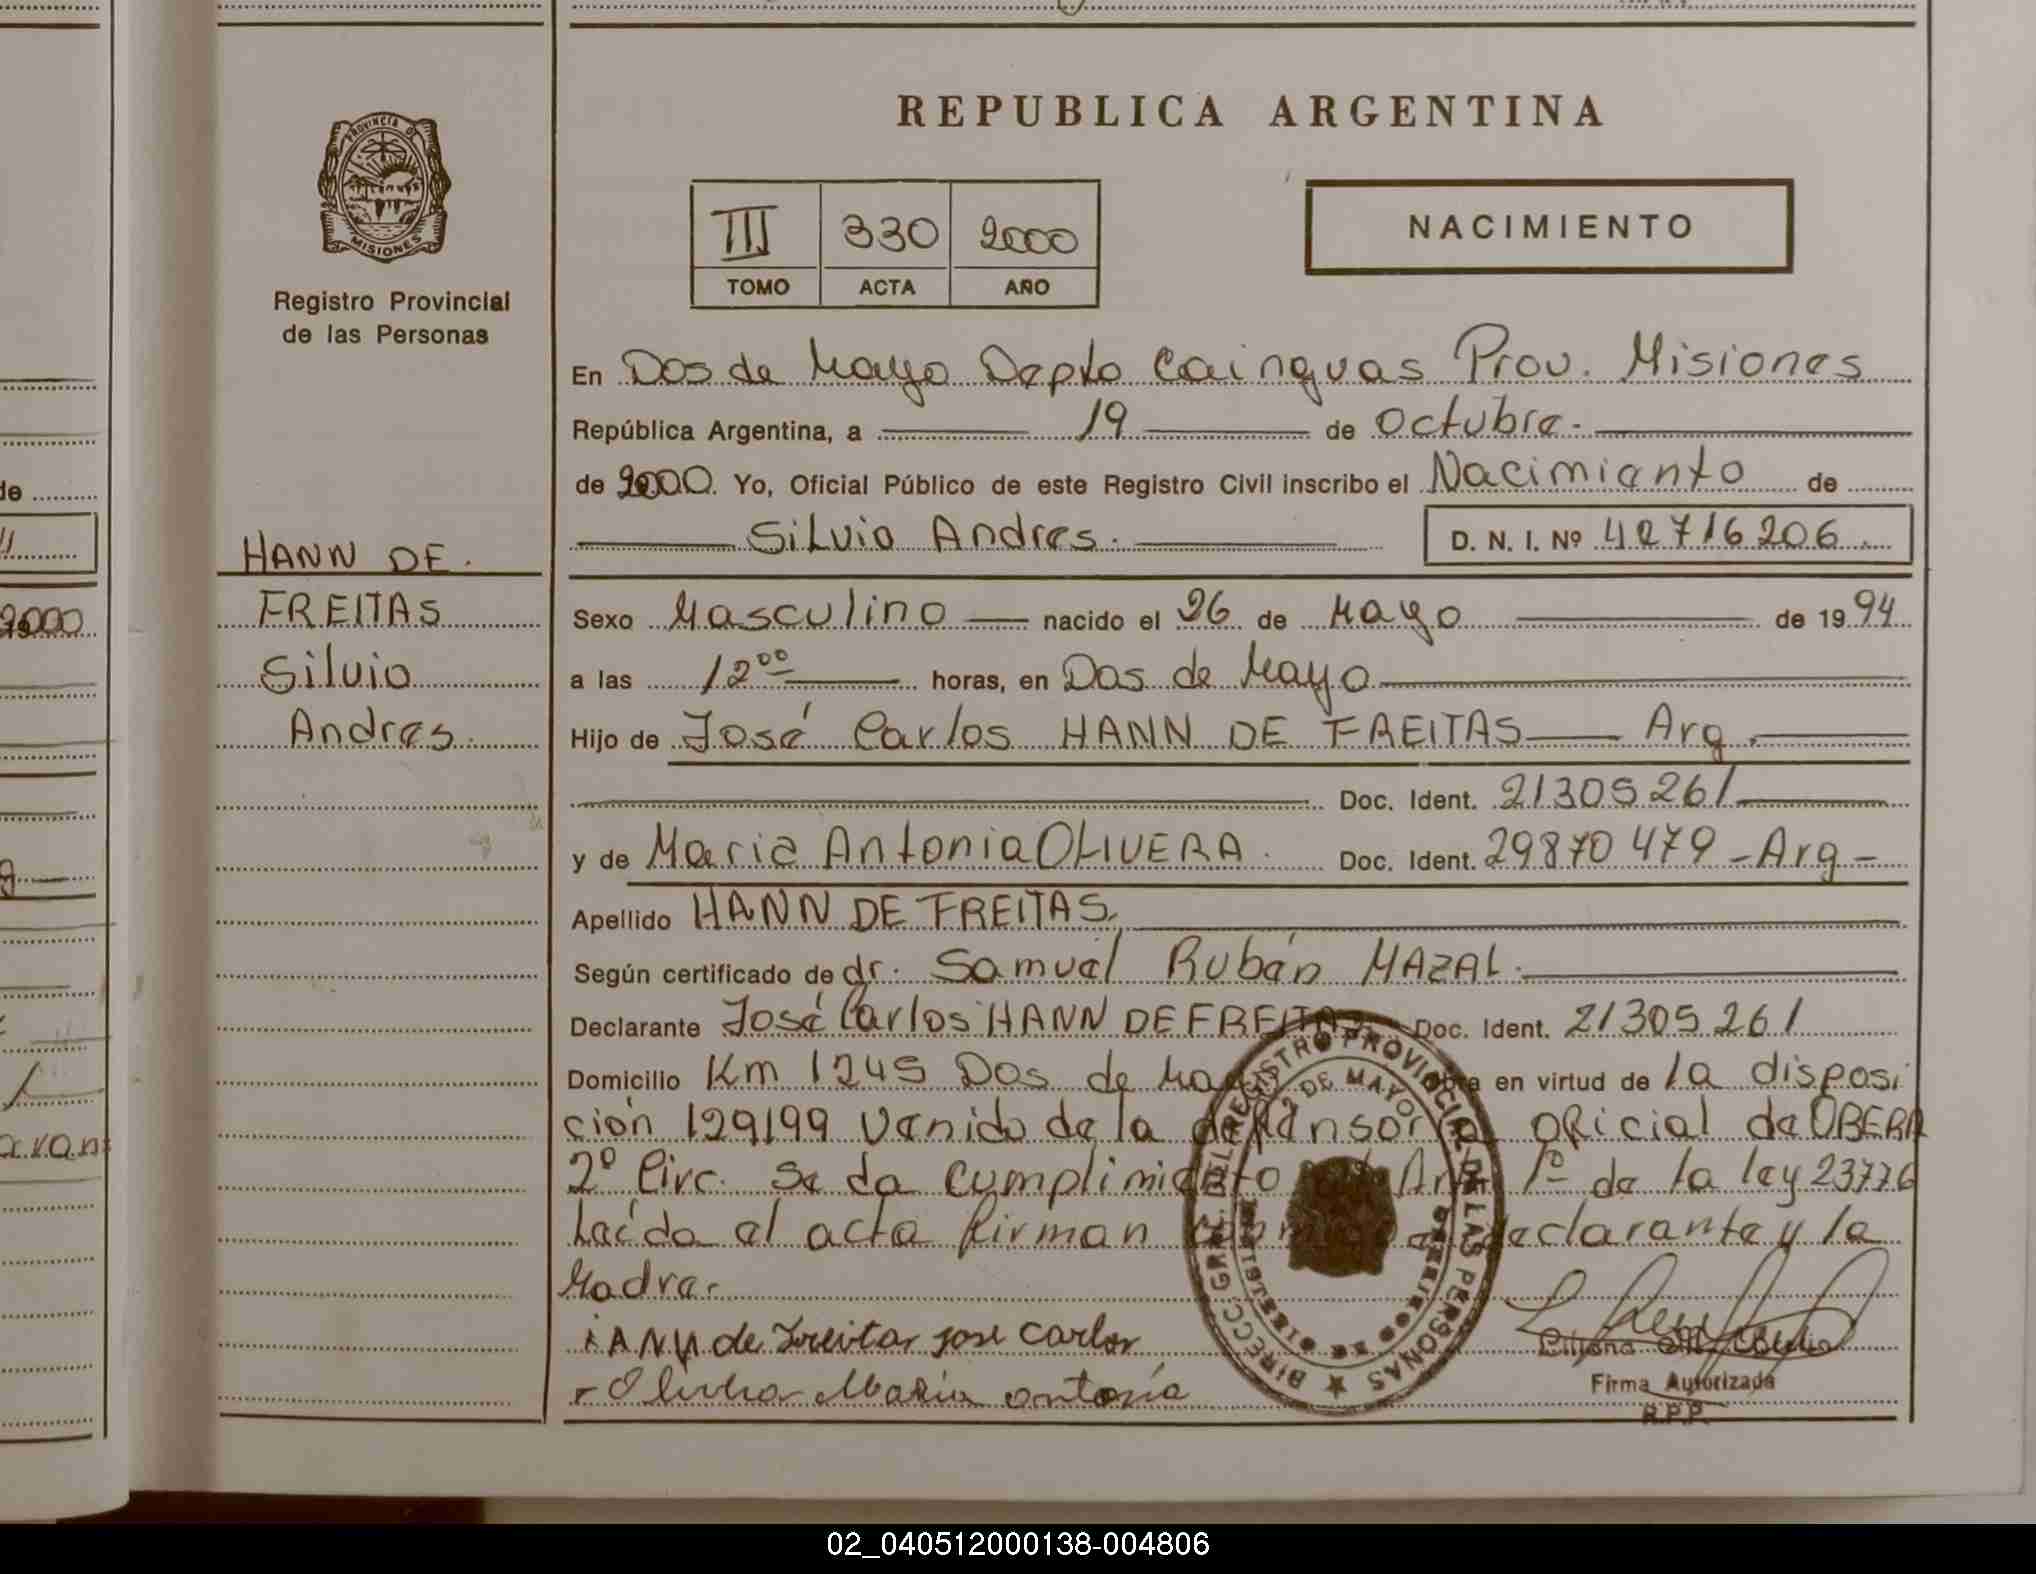 REPUBLICA ARGENTINA
PROVINCIA DE
MISIONES
Registro Provincial
de las Personas
III 330 2000
TOMO ACTA AÑO
NACIMIENTO
En Dos de Mayo Depto Cainguas Prov. Misiones
República Argentina, a 19 de Octubre.
de 2000. Yo, Oficial Público de este Registro Civil inscribo el Nacimiento de
Silvio Andres. D. N. I. Nº 42716206.
HANN DE.
FREITAS
Silvio
Andres.
Sexo Masculino nacido el 26 de Mayo de 1994
a las 12⁰⁰ horas, en Dos de Mayo
Hijo de José Carlos HANN DE FREITAS Arg.
Doc. Ident. 21305261
y de Maria Antonia OLIVERA. Doc. Ident. 29870479 - Arg -
Apellido HANN DE FREITAS.
Según certificado de dr. Samuel Rubén MAZAL.
Declarante José Carlos HANN DE FREITAS Doc. Ident. 21305261
Domicilio Km 1245 Dos de Mayo Obra en virtud de la disposi
ción 129199 venido de la defensoria oficial de OBERA
2º Circ. se da cumplimiento al Art. 1º de la ley 23776
Leída el acta firman declarante y la
Madre.
HANN de Freitas jose carlos
Olivera Maria antonia
DIRECC. GRAL. DEL REGISTRO PROVINCIAL DE LAS PERSONAS
2 DE MAYO
Firma Autorizada
R.P.P.
de
2000
02_040512000138-004806